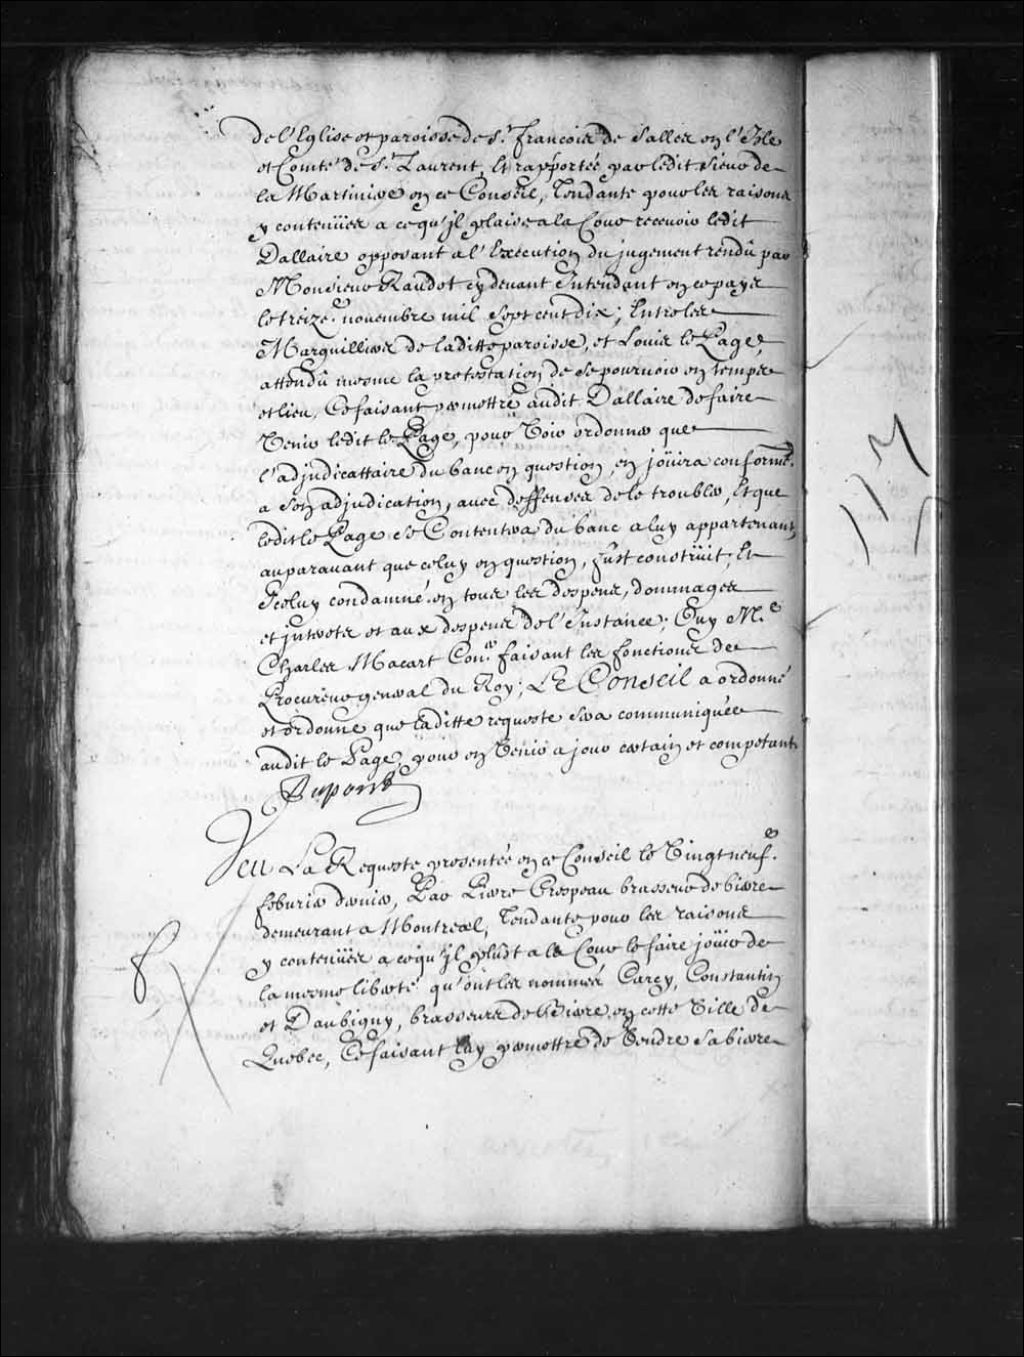 de l'Eglise et paroisse de S.^t francois de Salles en l'Isle
et Comté de S.^t Laurent, Et rapportée par ledit sieur de
la Martiniere en ce Conseil, Tendante pour les raisons
y contenües a ce qu'jl plaise a la Cour recevoir ledit
Dallaire opposant a l'Execution du jugement rendû par
Monsieur Raudot cydevant Intendant en ce pays
le treize.^e novembre mil sept cent dix; Entre les
Marguilliers de laditte paroisse, et Louis le Page,
attendû mesme la protestation de se pourvoir en temps
et lieu, Ce faisant permettre audit Dallaire de faire
Venir ledit le Page, pour Voir ordonner que
l'adjudicattaire du banc en question, en joüira conformé.^t
a son adjudication, avec deffenses de le troubler, Et que
ledit le Page se Contentera du banc a luy appartenant,
auparavant que celuy en question, fust construit; Et
Iceluy condamné en tous les despens, dommages
et jnterets et aux despens de l'Instance; Ouy M.^e
Charles Macart Con.^er faisant les fonctions de
Procureur general du Roy; LE Conseil a ordonné
et ordonne que laditte requeste sera communiquée
audit le Page, pour en Venir a jour certain et competant
Dupont
Veu La Requeste presentée en ce Conseil le Vingt neuf.^e
feburier dernier, Par Pierre Crespeau brasseur de bierre
demeurant a Montreal, Tendante pour les raisons
y contenües a ce qu'jl plust a la Cour le faire joüir de
la mesme liberté qu'ont les nommés Carcy, Constantin
et Daubigny, brasseurs de bierre en cette Ville de
Quebec, Ce faisant luy permettre de Vendre sa bierre